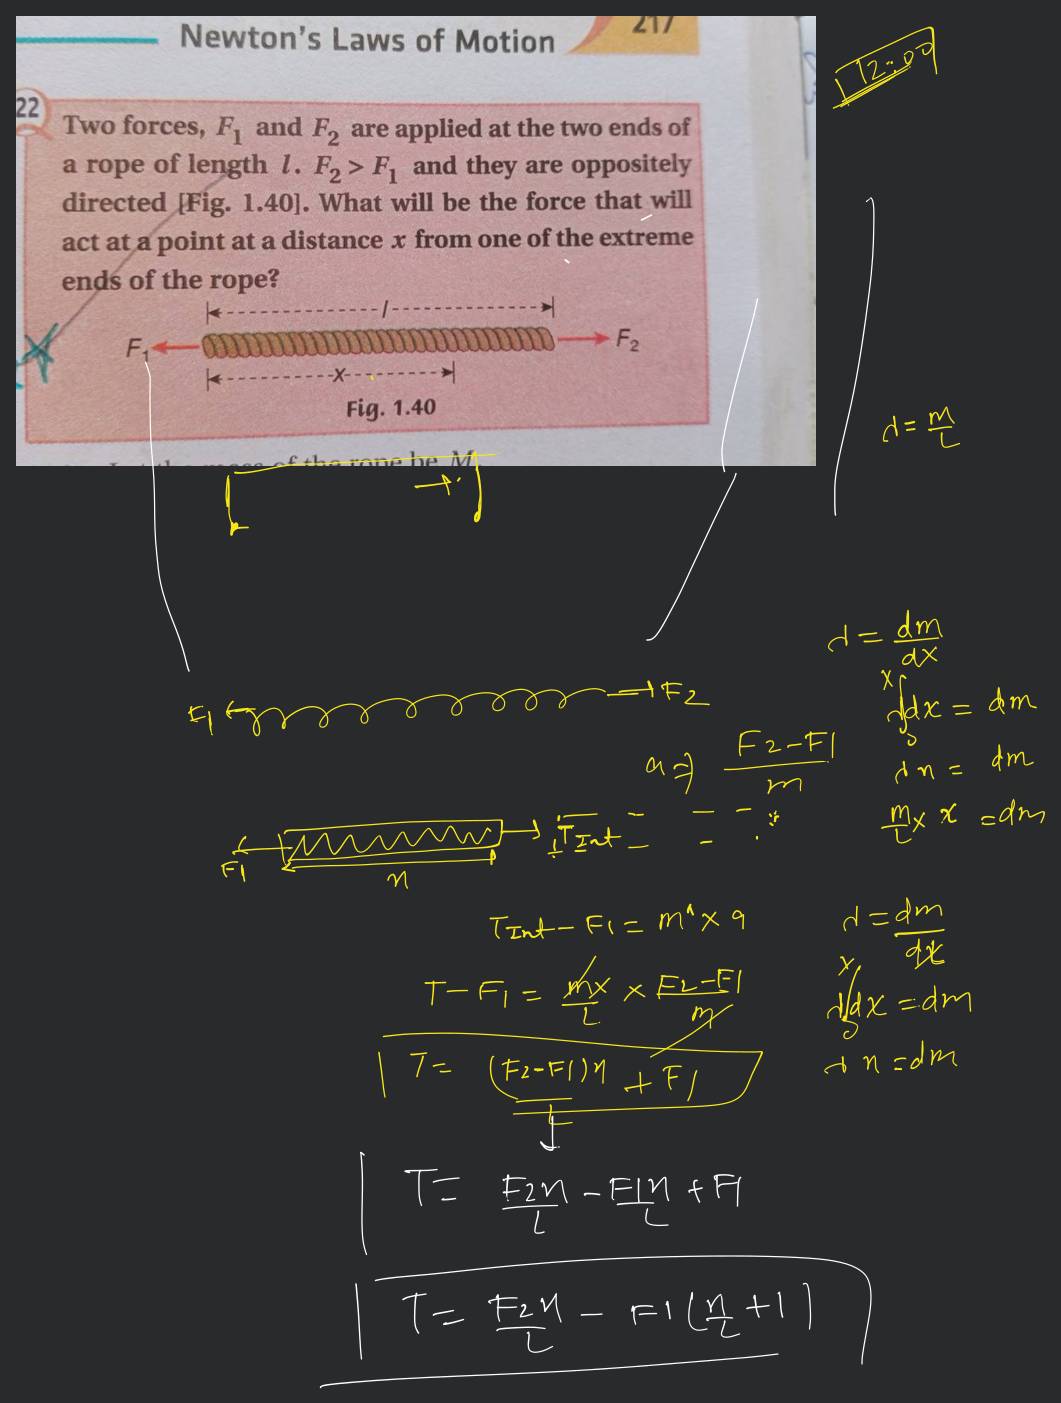 Newton's Laws of Motion
217
12:00
22
Two forces, F₁ and F₂ are applied at the two ends of
a rope of length l. F₂ > F₁ and they are oppositely
directed [Fig. 1.40]. What will be the force that will
act at a point at a distance x from one of the extreme
ends of the rope?
l
F₁
F₂
x
Fig. 1.40
of the rope be M
λ = m/L
λ = dm/dx
F1
F2
∫₀ˣ λdx = dm
a ⇒ (F2-F1)/m
λx = dm
m/L × x = dm
F1
TInt =
x
TInt - F1 = m' × a
λ = dm/dx
T - F1 = mx/L × (F2-F1)/m
λ∫₀ˣ dx = dm
T = (F2-F1)x/L + F1
λx = dm
T = F2x/L - F1x/L + F1
T = F2x/L - F1(x/L + 1)